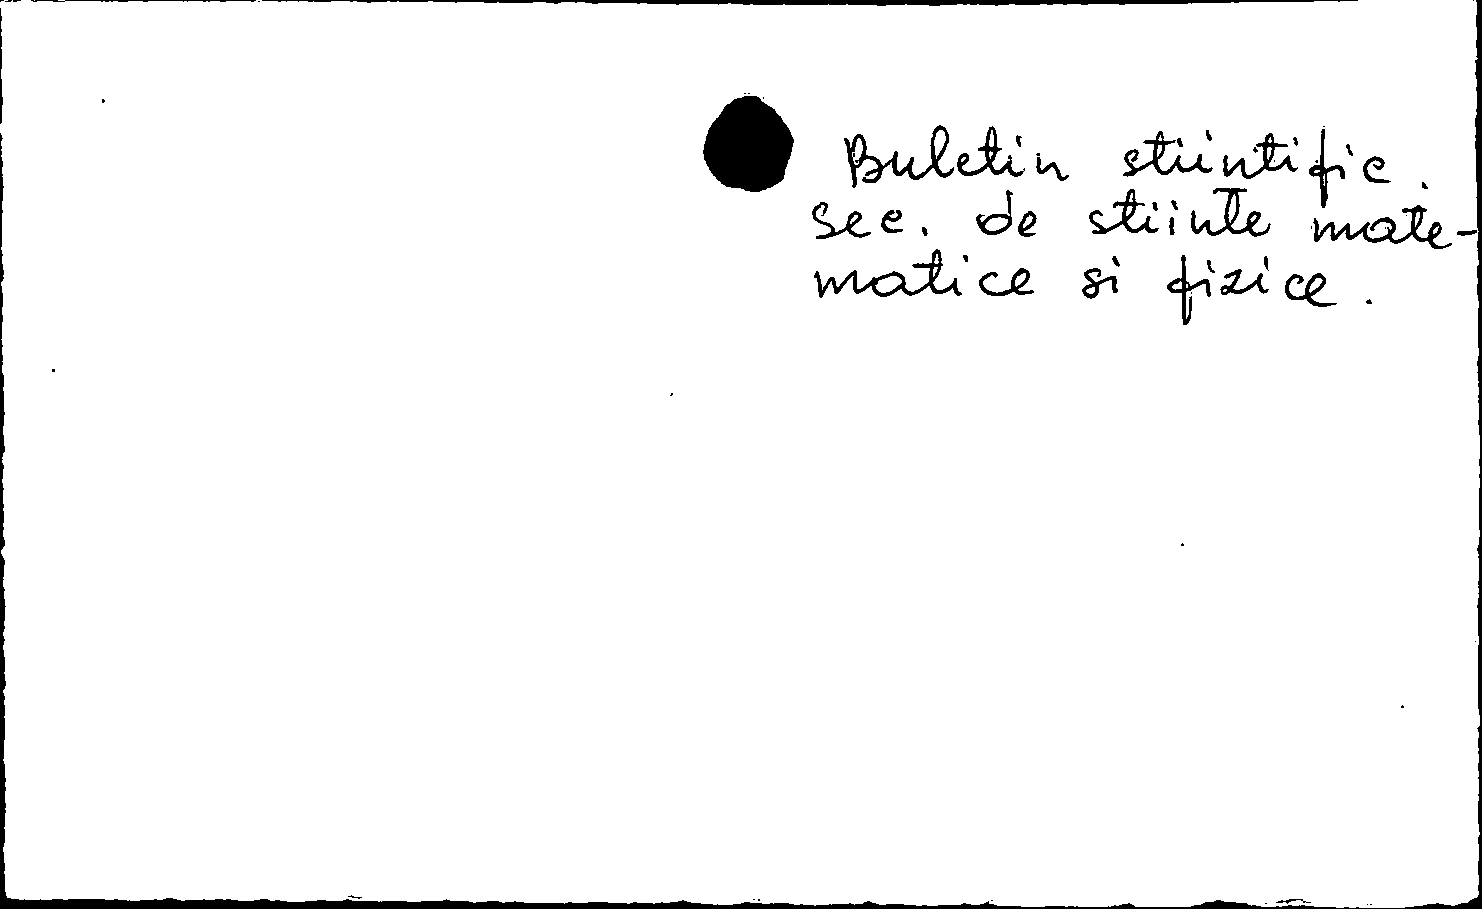 Buletin stiintific.
Sec. de stiinte mate-
matice si fizice.